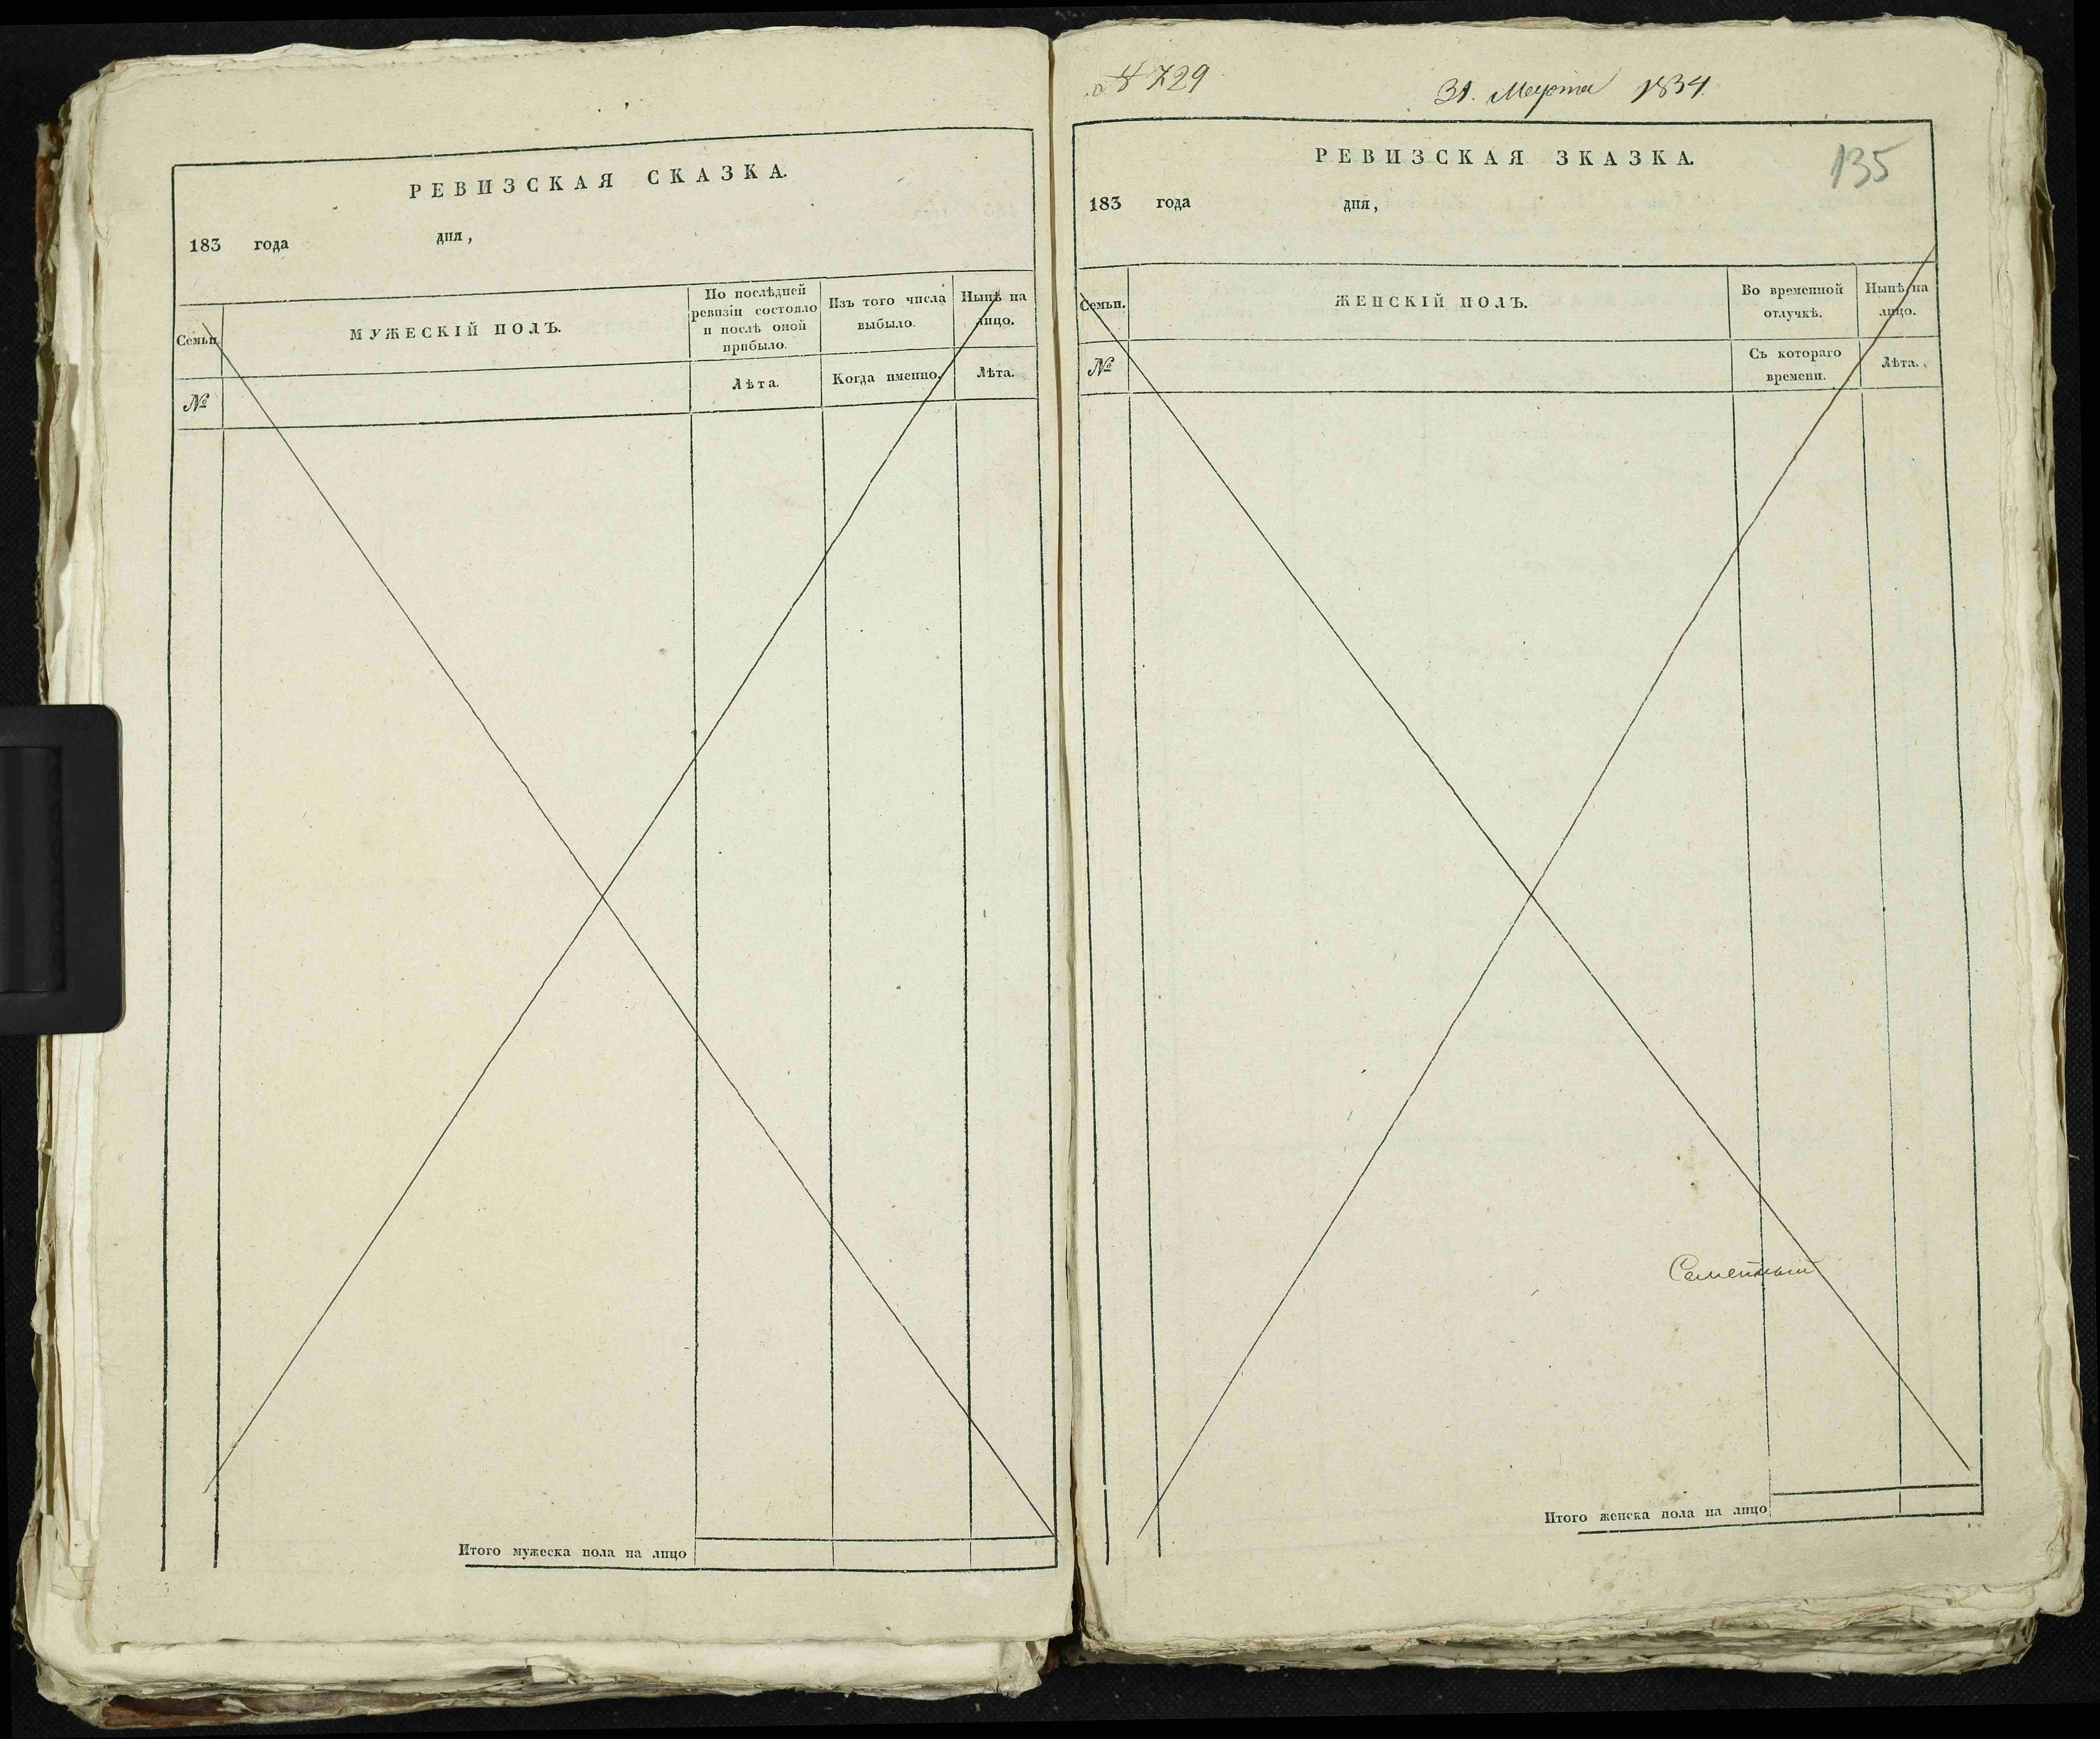 РЕВИЗСКАЯ СКАЗКА.
183 года дня,
Семьи.
МУЖЕСКІЙ ПОЛЪ.
По послѣдней ревизіи состояло и послѣ оной прибыло.
Изъ того числа выбыло.
Нынѣ на лицо.
№
Лѣта.
Когда именно.
Лѣта.
Итого мужеска пола на лицо
№ 729
31. Марта 1834.
РЕВИЗСКАЯ ЗКАЗКА.
135
183 года дня,
Семьи.
ЖЕНСКІЙ ПОЛЪ.
Во временной отлучкѣ.
Нынѣ на лицо.
№
Съ котораго времени.
Лѣта.
Итого женска пола на лицо